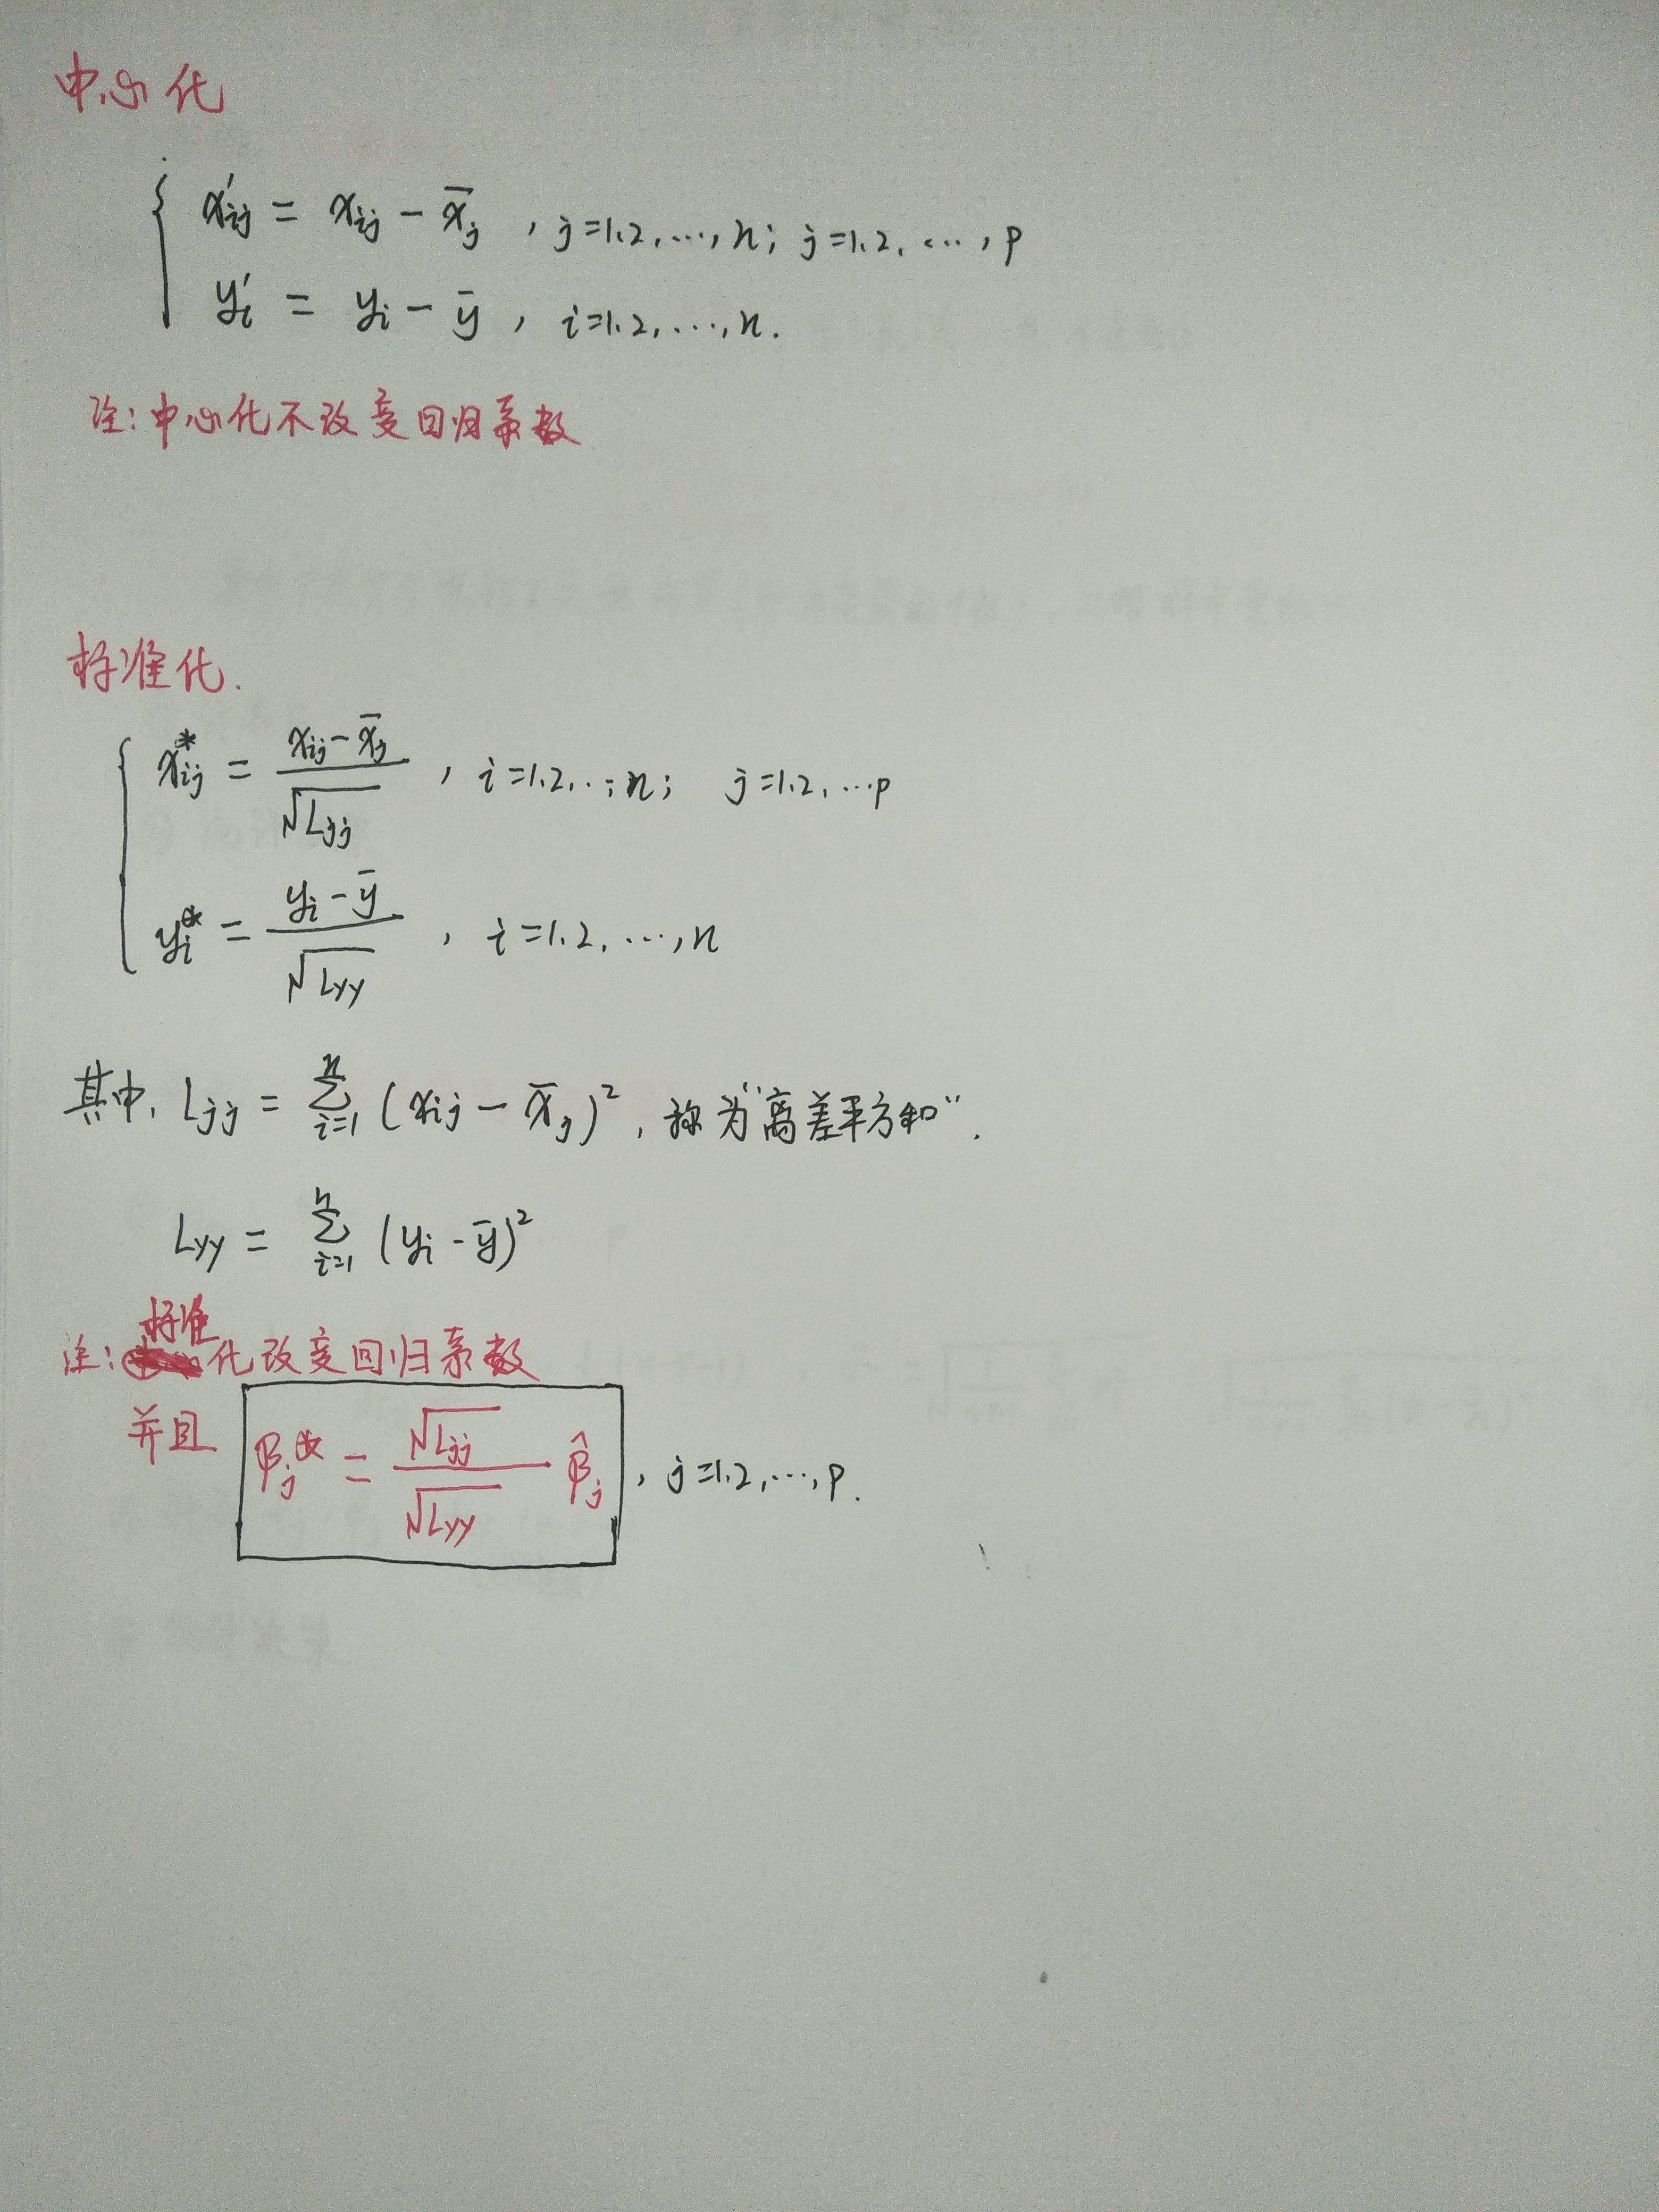 中心化
x'ij = xij − x̄j , j=1.2,…,n; j=1.2.…,p
y'i = yi − ȳ , i=1.2,…,n.
注:中心化不改变回归系数
标准化.
x*ij = (xij − x̄j)/√Ljj , i=1.2,..,n; j=1.2,…p
y*i = (yi − ȳ)/√Lyy , i=1.2,…,n
其中, Ljj = Σ_{i=1}^{n} (xij − x̄j)², 称为"离差平方和".
Lyy = Σ_{i=1}^{n} (yi − ȳ)²
注:标准化改变回归系数
并且 βj* = √Ljj/√Lyy β̂j , j=1.2,…,p.